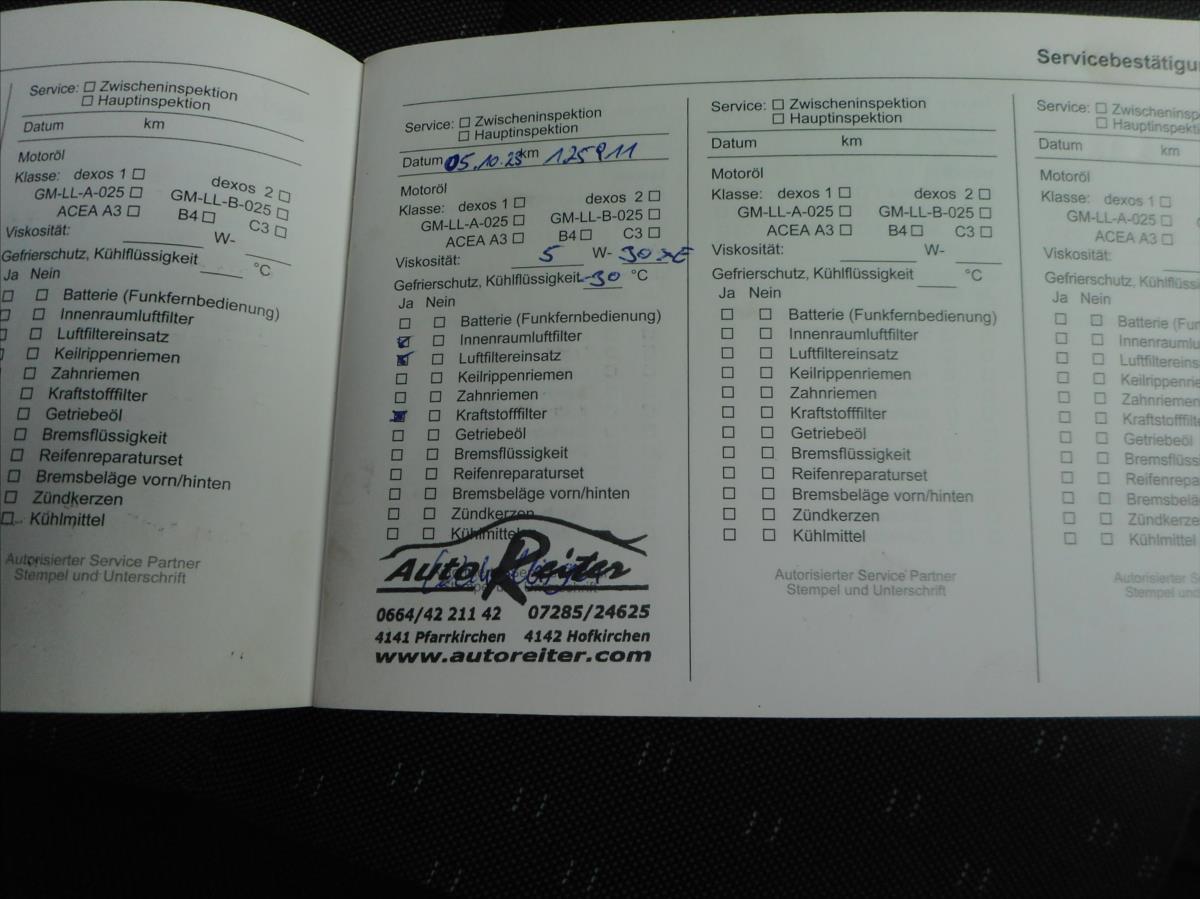 Service: ☐ Zwischeninspektion
☐ Hauptinspektion
Datum km
Motoröl
Klasse: dexos 1 ☐ dexos 2 ☐
GM-LL-A-025 ☐ GM-LL-B-025 ☐
ACEA A3 ☐ B4 ☐ C3 ☐
Viskosität: W-
Gefrierschutz, Kühlflüssigkeit °C
Ja Nein
☐ ☐ Batterie (Funkfernbedienung)
☐ ☐ Innenraumluftfilter
☐ ☐ Luftfiltereinsatz
☐ ☐ Keilrippenriemen
☐ ☐ Zahnriemen
☐ ☐ Kraftstofffilter
☐ ☐ Getriebeöl
☐ ☐ Bremsflüssigkeit
☐ ☐ Reifenreparaturset
☐ ☐ Bremsbeläge vorn/hinten
☐ ☐ Zündkerzen
☐ ☐ Kühlmittel
Autorisierter Service Partner
Stempel und Unterschrift
Servicebestätigu
Service: ☐ Zwischeninspektion
☐ Hauptinspektion
Datum 05.10.23 km 125911
Motoröl
Klasse: dexos 1 ☐ dexos 2 ☐
GM-LL-A-025 ☐ GM-LL-B-025 ☐
ACEA A3 ☐ B4 ☐ C3 ☐
Viskosität: 5 W- 30
Gefrierschutz, Kühlflüssigkeit -30 °C
Ja Nein
☐ ☐ Batterie (Funkfernbedienung)
☑ ☐ Innenraumluftfilter
☑ ☐ Luftfiltereinsatz
☐ ☐ Keilrippenriemen
☐ ☐ Zahnriemen
☑ ☐ Kraftstofffilter
☐ ☐ Getriebeöl
☐ ☐ Bremsflüssigkeit
☐ ☐ Reifenreparaturset
☐ ☐ Bremsbeläge vorn/hinten
☐ ☐ Zündkerzen
☐ ☐ Kühlmittel
Auto Reiter
0664/42 211 42 07285/24625
4141 Pfarrkirchen 4142 Hofkirchen
www.autoreiter.com
Service: ☐ Zwischeninspektion
☐ Hauptinspektion
Datum km
Motoröl
Klasse: dexos 1 ☐ dexos 2 ☐
GM-LL-A-025 ☐ GM-LL-B-025 ☐
ACEA A3 ☐ B4 ☐ C3 ☐
Viskosität: W-
Gefrierschutz, Kühlflüssigkeit °C
Ja Nein
☐ ☐ Batterie (Funkfernbedienung)
☐ ☐ Innenraumluftfilter
☐ ☐ Luftfiltereinsatz
☐ ☐ Keilrippenriemen
☐ ☐ Zahnriemen
☐ ☐ Kraftstofffilter
☐ ☐ Getriebeöl
☐ ☐ Bremsflüssigkeit
☐ ☐ Reifenreparaturset
☐ ☐ Bremsbeläge vorn/hinten
☐ ☐ Zündkerzen
☐ ☐ Kühlmittel
Autorisierter Service Partner
Stempel und Unterschrift
Service: ☐ Zwischeninsp
☐ Hauptinspekti
Datum km
Motoröl
Klasse: dexos 1 ☐
GM-LL-A-025 ☐ GM-L
ACEA A3 ☐
Viskosität:
Gefrierschutz, Kühlflüssi
Ja Nein
☐ ☐ Batterie (Funkf
☐ ☐ Innenraumluf
☐ ☐ Luftfiltereins
☐ ☐ Keilrippenri
☐ ☐ Zahnriemen
☐ ☐ Kraftstofffilt
☐ ☐ Getriebeöl
☐ ☐ Bremsflüssi
☐ ☐ Reifenrepa
☐ ☐ Bremsbeläg
☐ ☐ Zündkerze
☐ ☐ Kühlmittel
Autorisierter S
Stempel und